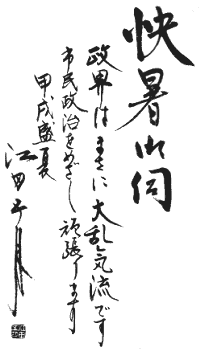 快暑御伺
政界はまさに大乱気流です
市民政治をめざし頑張ります
甲戌盛夏
江田五月